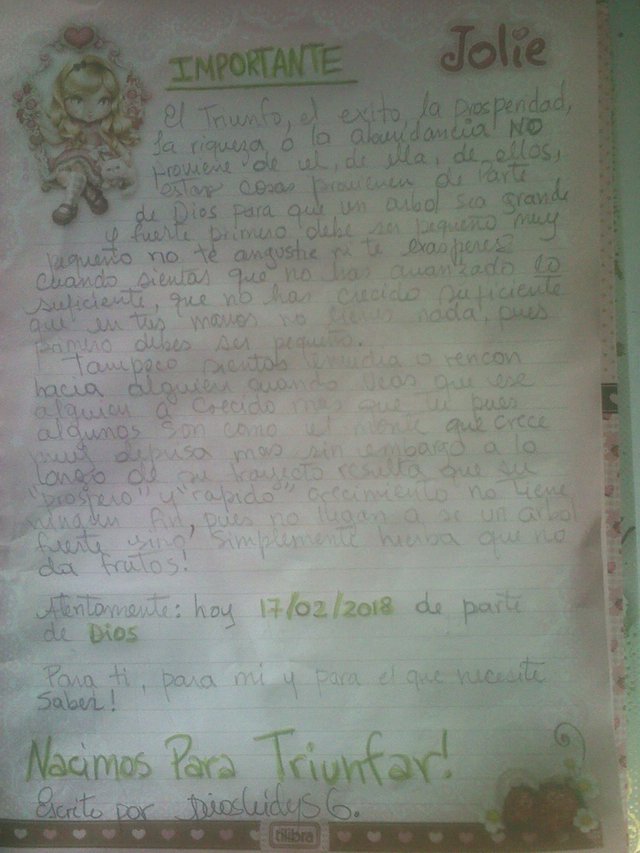 Jolie
IMPORTANTE
El Triunfo, el exito, la prosperidad,
la riqueza o la abundancia NO
proviene de el, de ella, de ellos,
estas cosas provienen de parte
de Dios para que un arbol sea grande
y fuerte primero debe ser pequeño muy
pequeño no te angustie ni te exasperes
cuando sientas que no has avanzado lo
suficiente, que no has crecido suficiente
que en tus manos no tienes nada, pues
primero debes ser pequeño.
Tampoco sientas envidia o rencon
hacia alguien cuando veas que ese
alguien a crecido mas que tu pues
algunos son como el monte que crece
muy depusa mas sin embargo a lo
largo de su trayecto resulta que su
"prospero" y "rapido" crecimiento no tiene
ningun fin, pues no llegan a se un arbol
fuerte sino simplemente hierba que no
da frutos!
Atentamente: hoy 17/02/2018 de parte
de Dios
Para ti, para mi y para el que necesite
saber!
Nacimos Para Triunfar!
Escrito por Diosleidys G.
tilibra